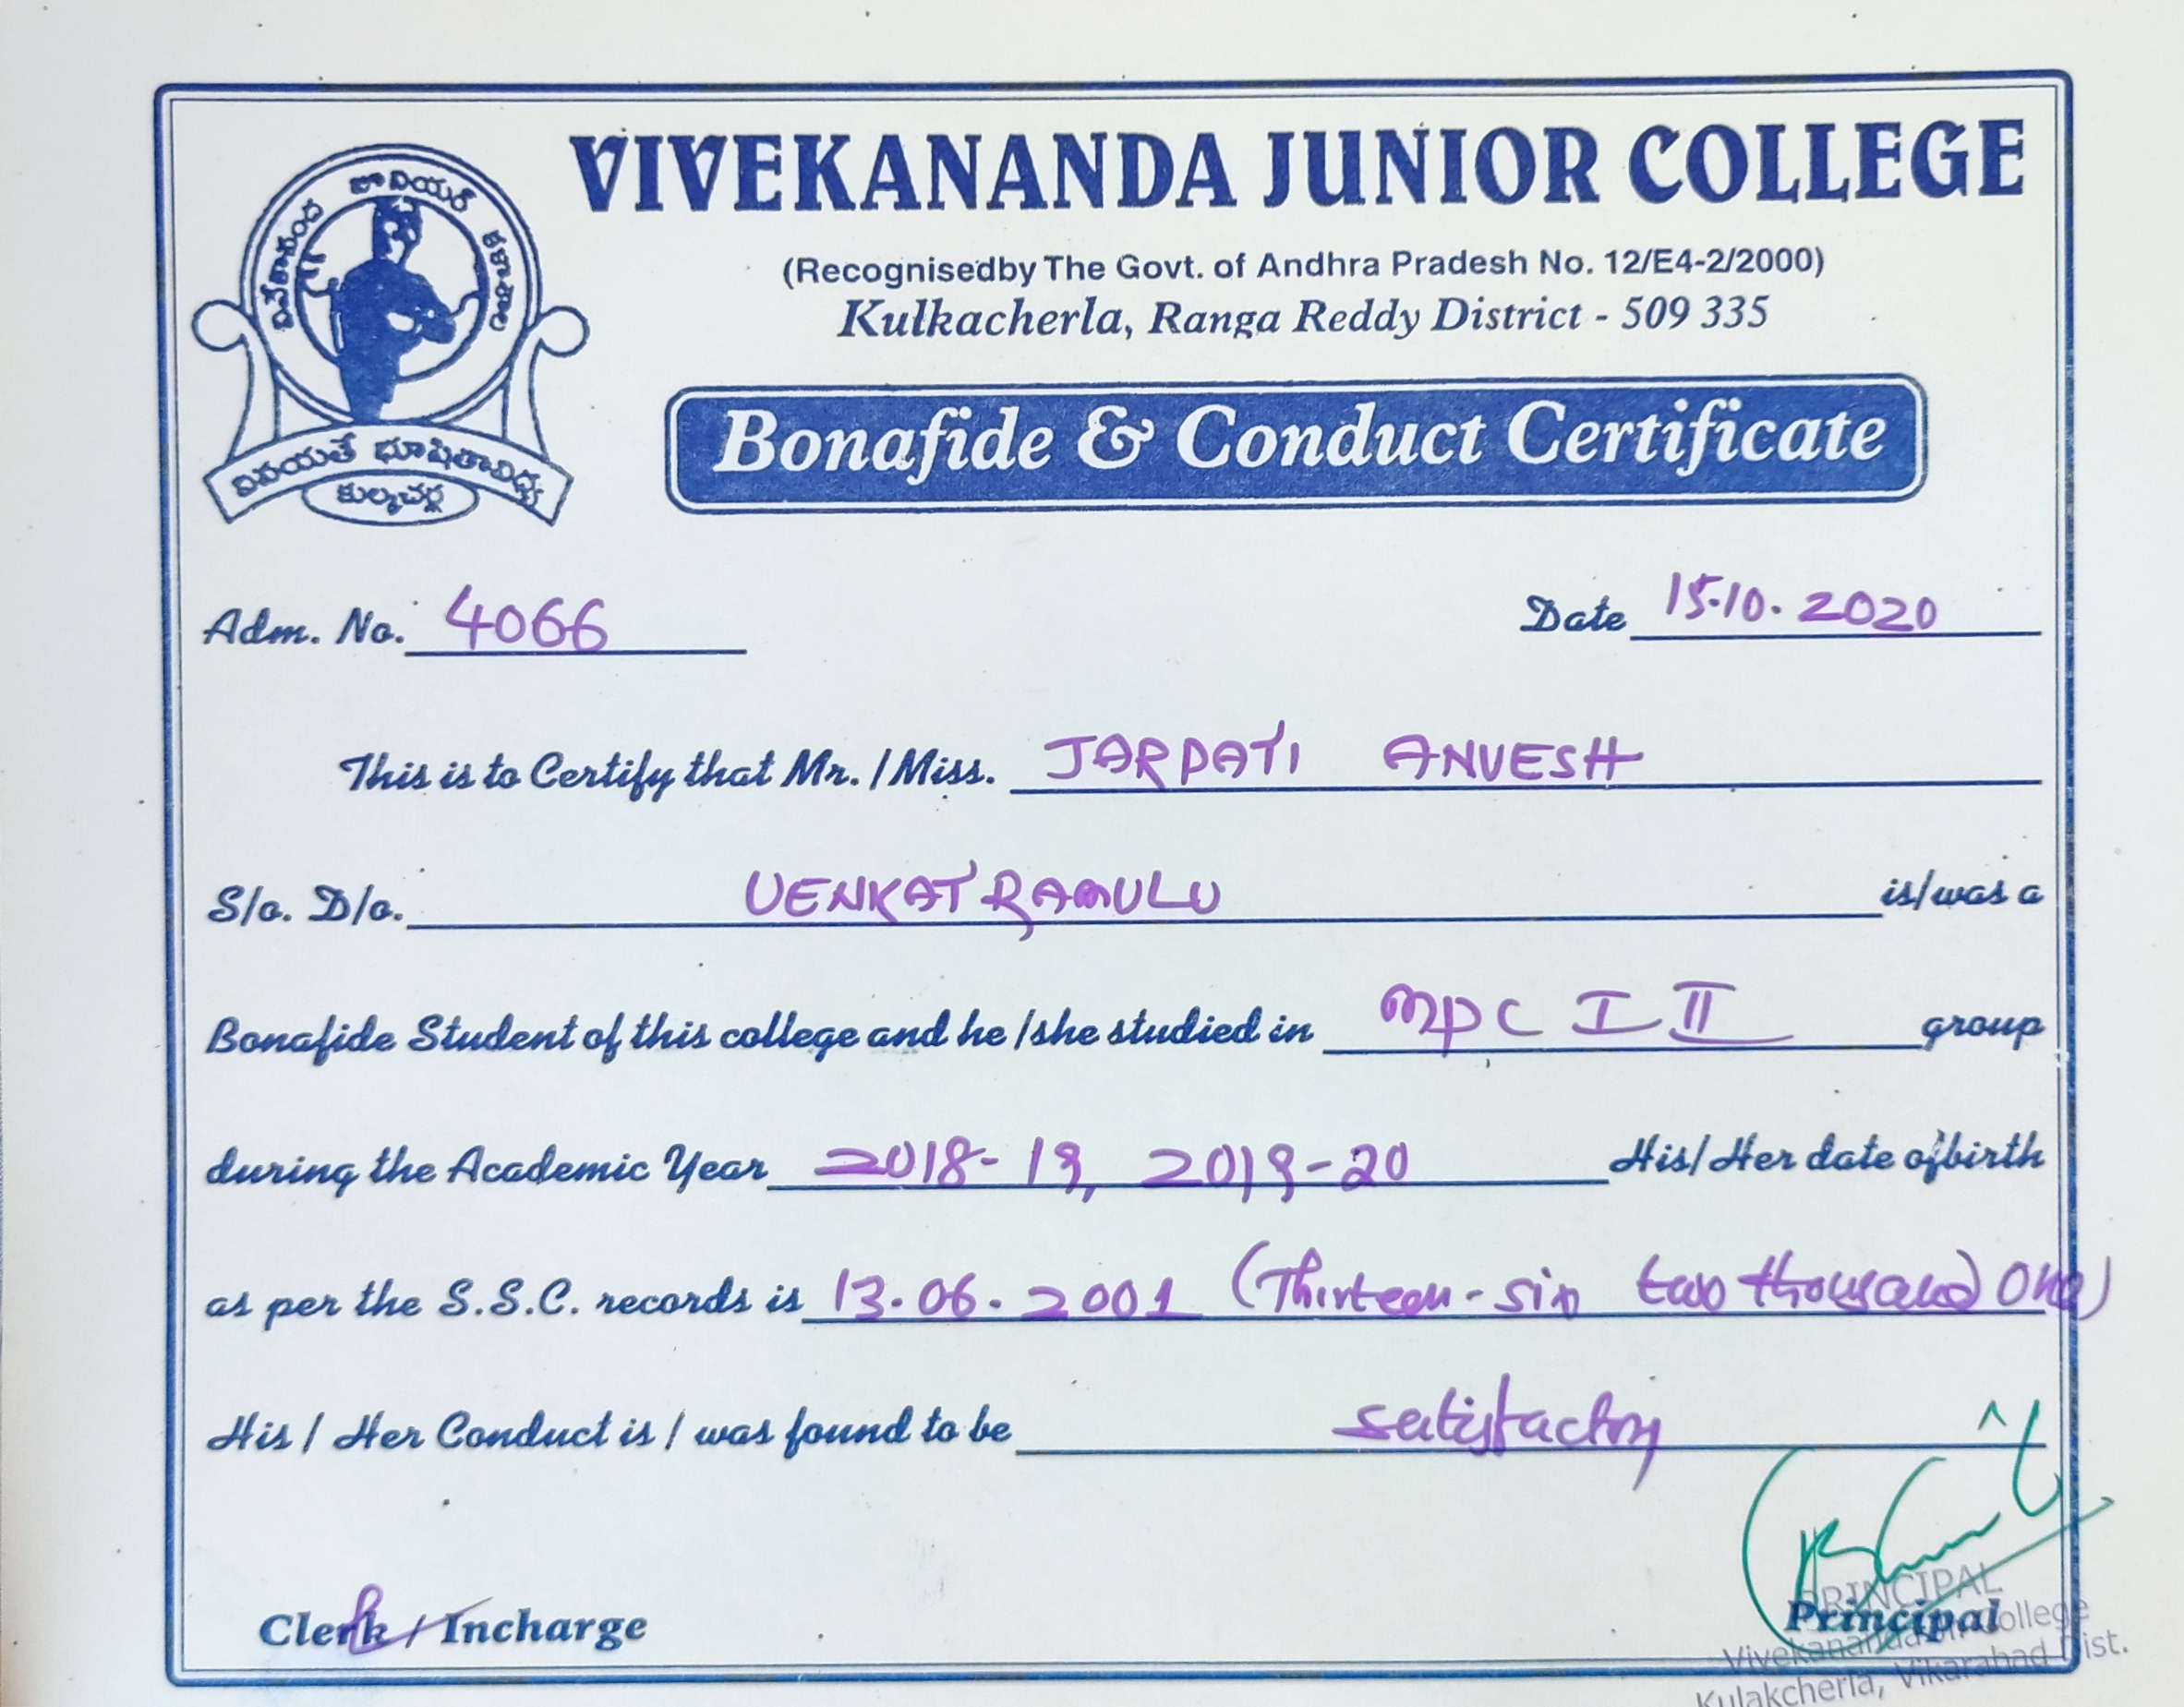 VIVEKANANDA JUNIOR COLLEGE
(Recognisedby The Govt. of Andhra Pradesh No. 12/E4-2/2000)
Kulkacherla, Ranga Reddy District - 509 335
వివేకానంద జూనియర్ కళాశాల
వినయతే భూషితావిద్య
కుల్కచర్ల
Bonafide & Conduct Certificate
Adm. No. 4066 Date 15.10.2020
This is to Certify that Mr. / Miss. JARPATI ANVESH
S/o. D/o. VENKATRAMULU is/was a
Bonafide Student of this college and he /she studied in MPC I II group
during the Academic Year 2018-19, 2019-20 His/ Her date of birth
as per the S.S.C. records is 13.06.2001 (Thirteen-six two thousand one)
His / Her Conduct is / was found to be satisfactory
Clerk / Incharge Principal
PRINCIPAL
Vivekananda Jr. College
Kulakcherla, Vikarabad Dist.